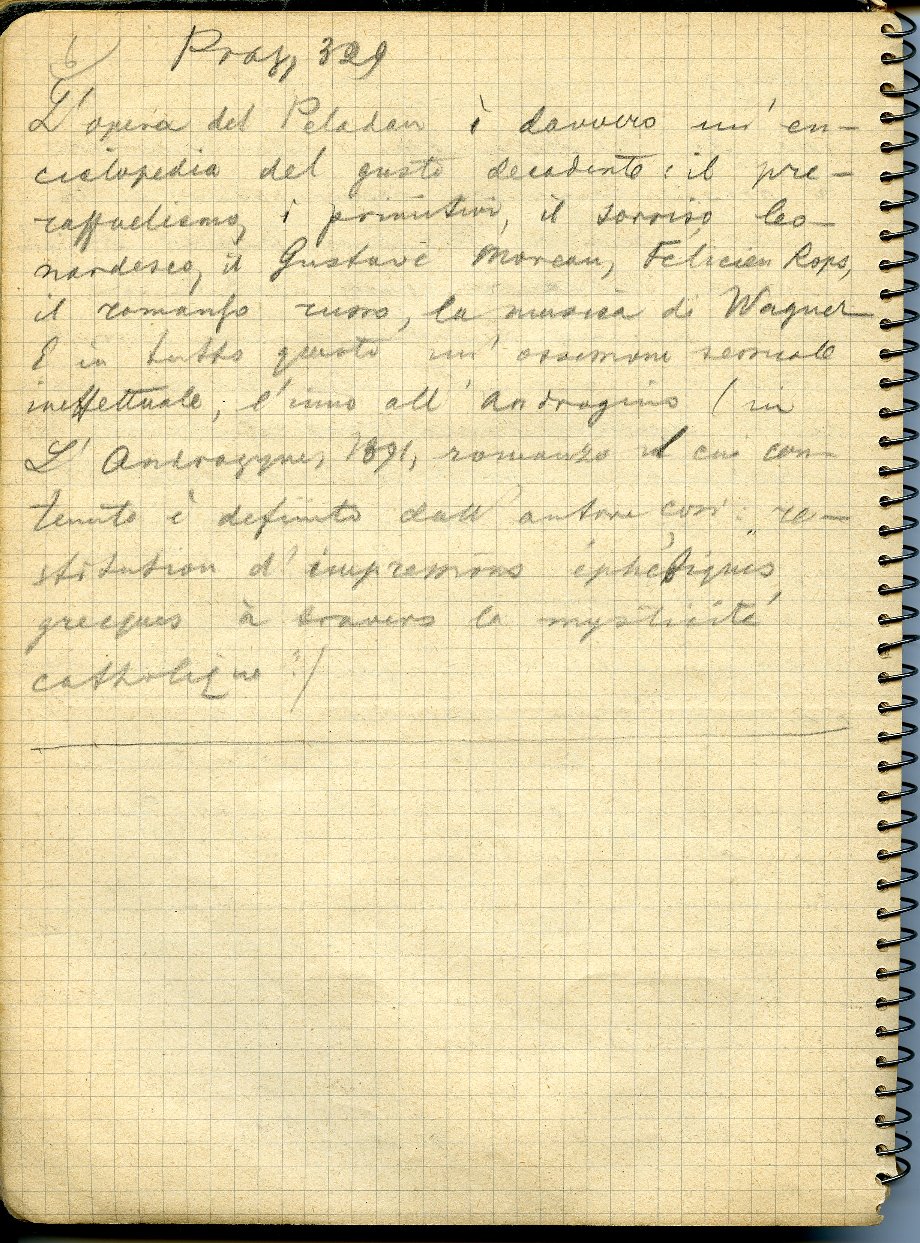 6) Praz, 329
L'opera del Peladan è davvero un'en-
ciclopedia del gusto decadente: il pre-
raffaelismo, i primitivi, il sorriso leo-
nardesco, il Gustave Moreau, Felicien Rops,
il romanzo russo, la musica di Wagner
E in tutto questo un'ossessione sessuale
ineffettuale, l'inno all'androgino (in
L'Androgyne, 1891, romanzo il cui con-
tenuto è definito dall'autore così: "re-
stitution d'impressions éphébiques
grecques à travers la mysticité
catholique")